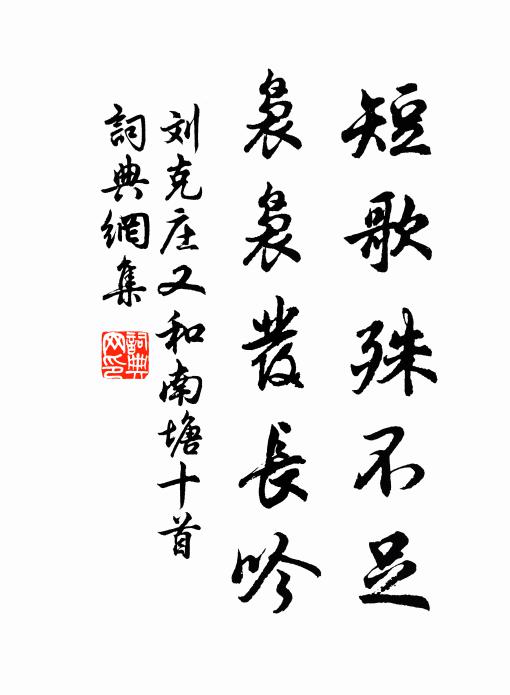 短歌殊不足
裊裊發長吟
刘克庄又和南塘十首
詞典網集
詞典网印